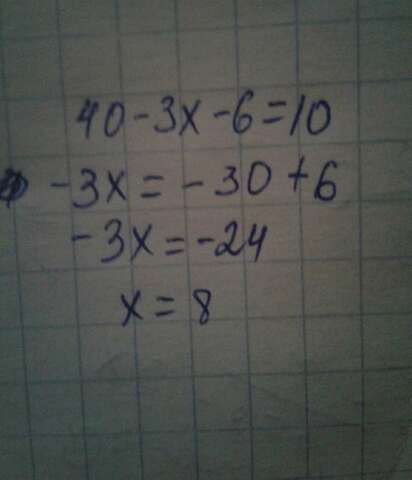 40-3x-6=10
-3x=-30+6
-3x=-24
x=8